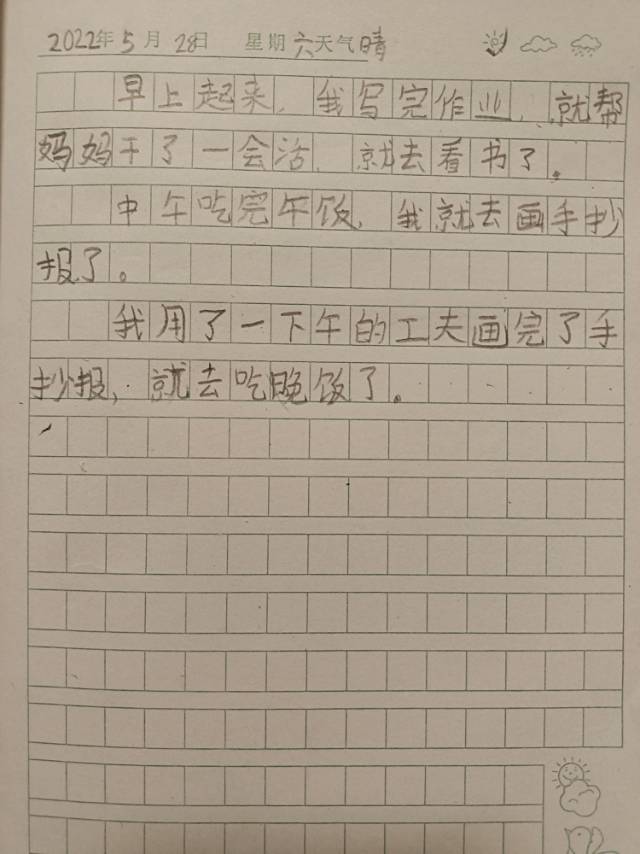 2022年5月28日 星期六天气晴
早上起来,我写完作业,就帮
妈妈干了一会活,就去看书了。
中午吃完午饭,我就去画手抄
报了。
我用了一下午的工夫画完了手
抄报,就去吃晚饭了。